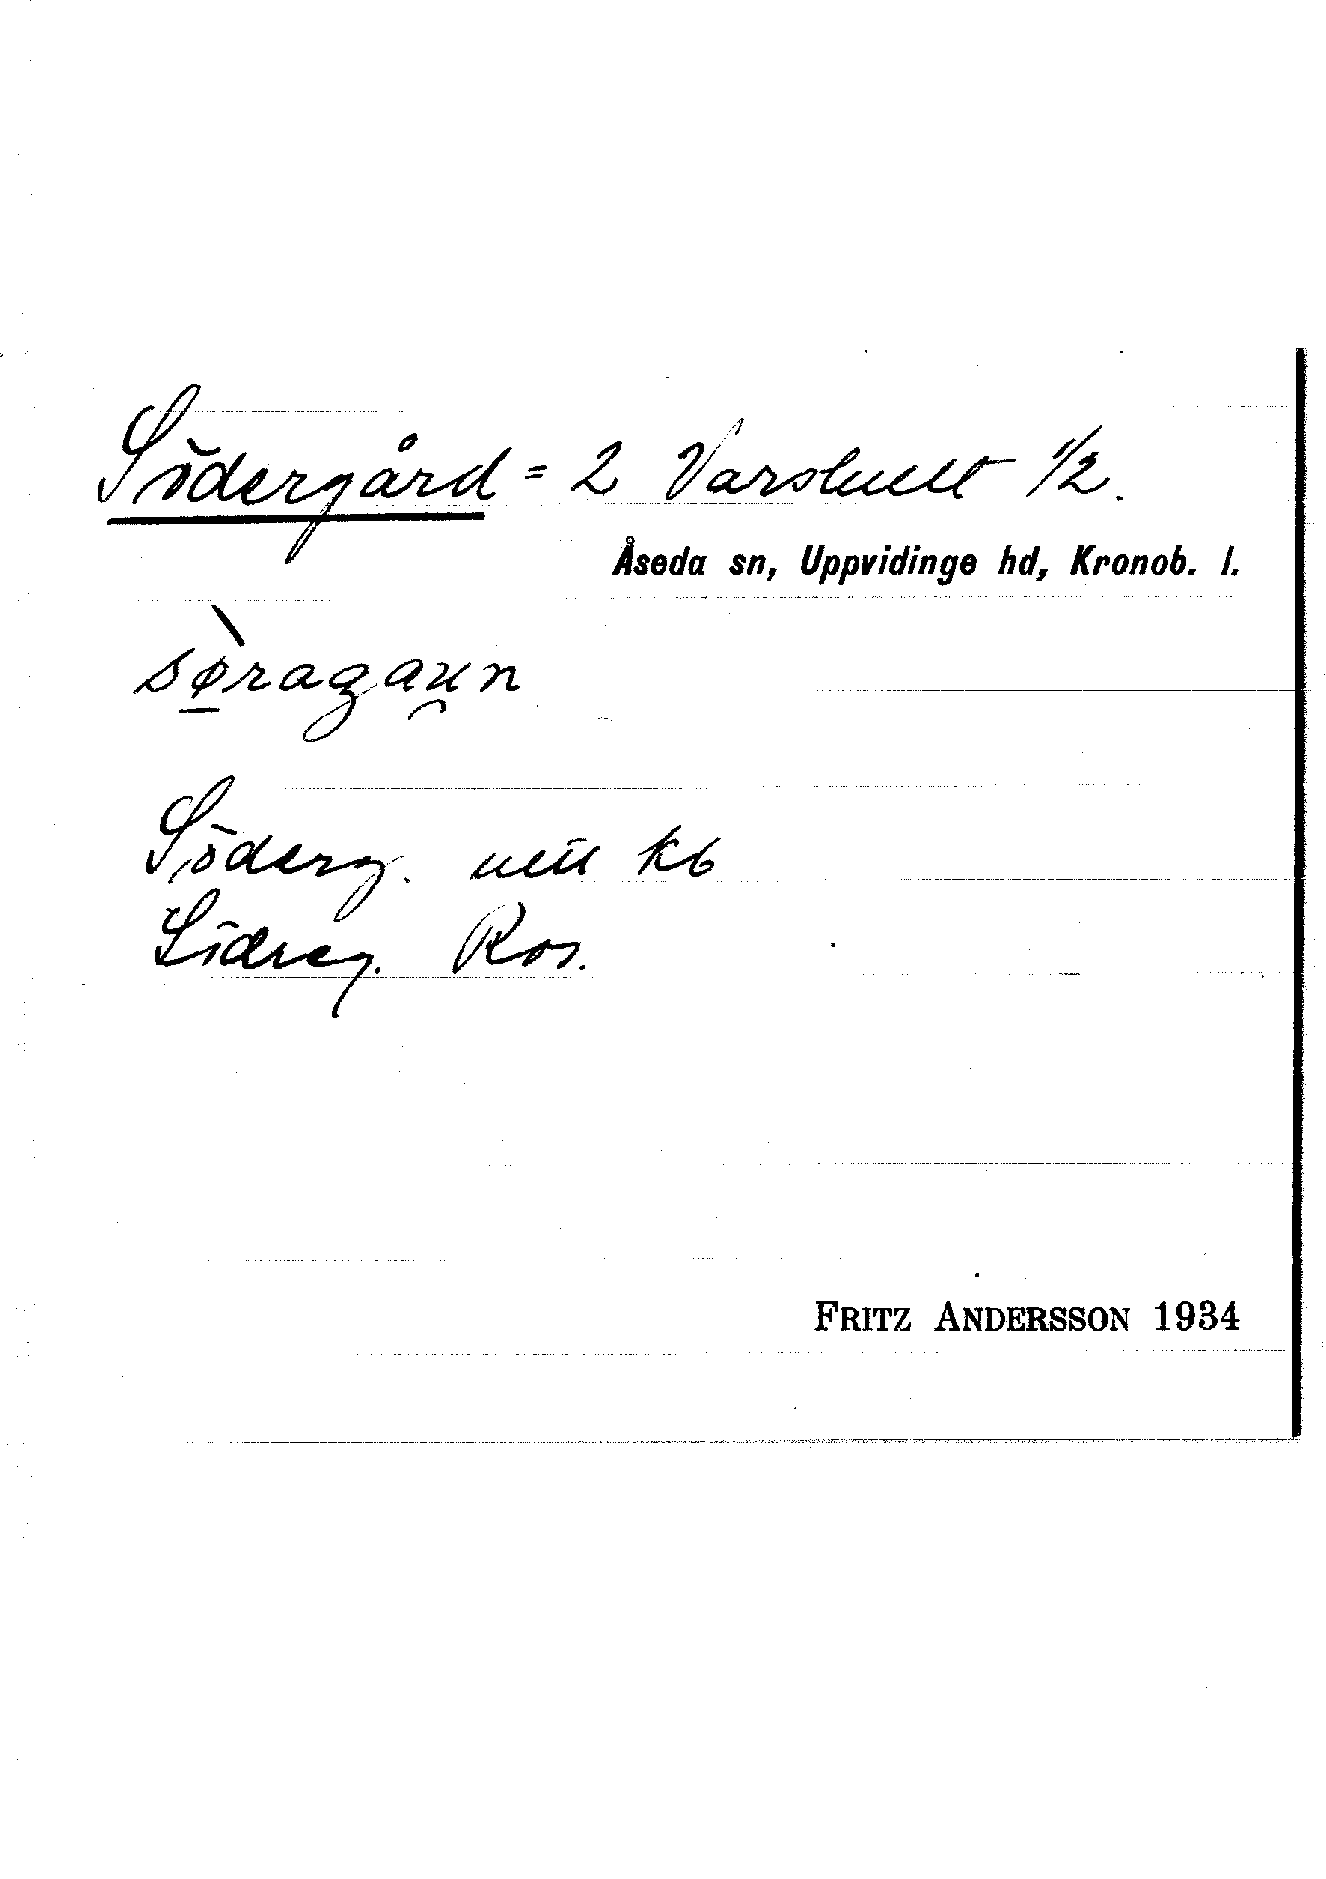 Södergård = 2 Varshult 1/2.
Åseda sn, Uppvidinge hd, Kronob. l.
sø̀ragau̯n
Söderg. kb
Södreg. Ros.
FRITZ ANDERSSON 1934